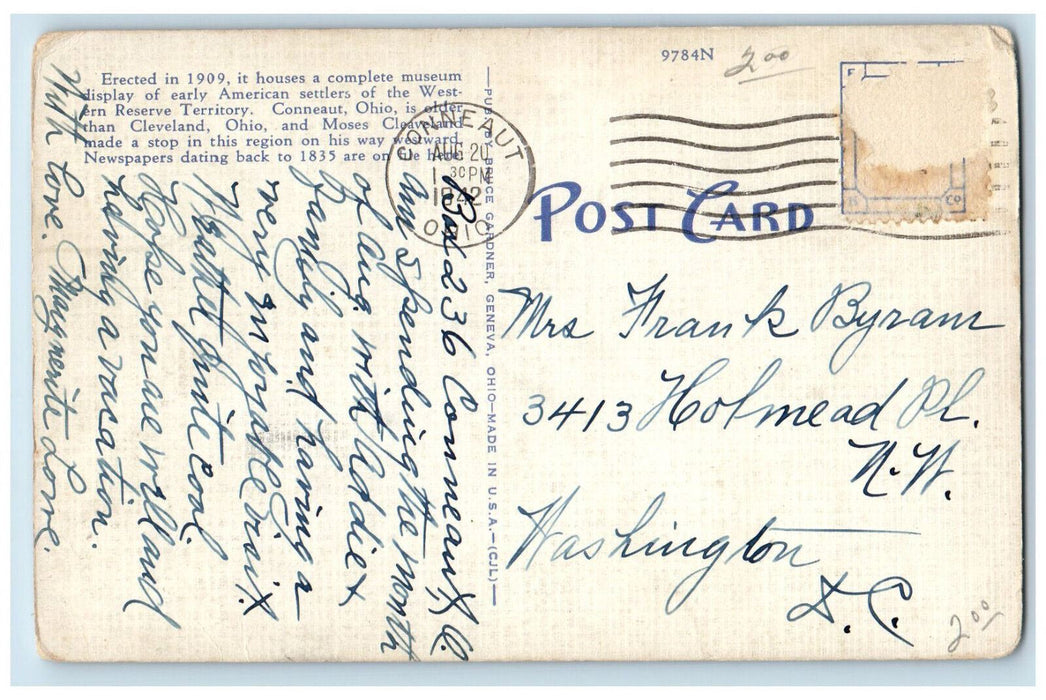 Erected in 1909, it houses a complete museum
display of early American settlers of the West-
ern Reserve Territory. Conneaut, Ohio, is older
than Cleveland, Ohio, and Moses Cleaveland
made a stop in this region on his way westward.
Newspapers dating back to 1835 are on file here
9784N
2.00
CONNEAUT
AUG 20
30 PM
1942
OHIO
POST CARD
—PUB. BY BRUCE GARDNER, GENEVA, OHIO—MADE IN U.S.A.—(CJL)—
Box 236 Conneaut, O.
Am spending the month
of Aug. with Eddie &
family and having a
very enjoyable visit.
Weather quite cool.
Hope you are well and
having a vacation.
With love. Marguerite Lowe.
Mrs Frank Byram
3413 Holmead Pl.
N.W.
Washington
D.C.
2.00